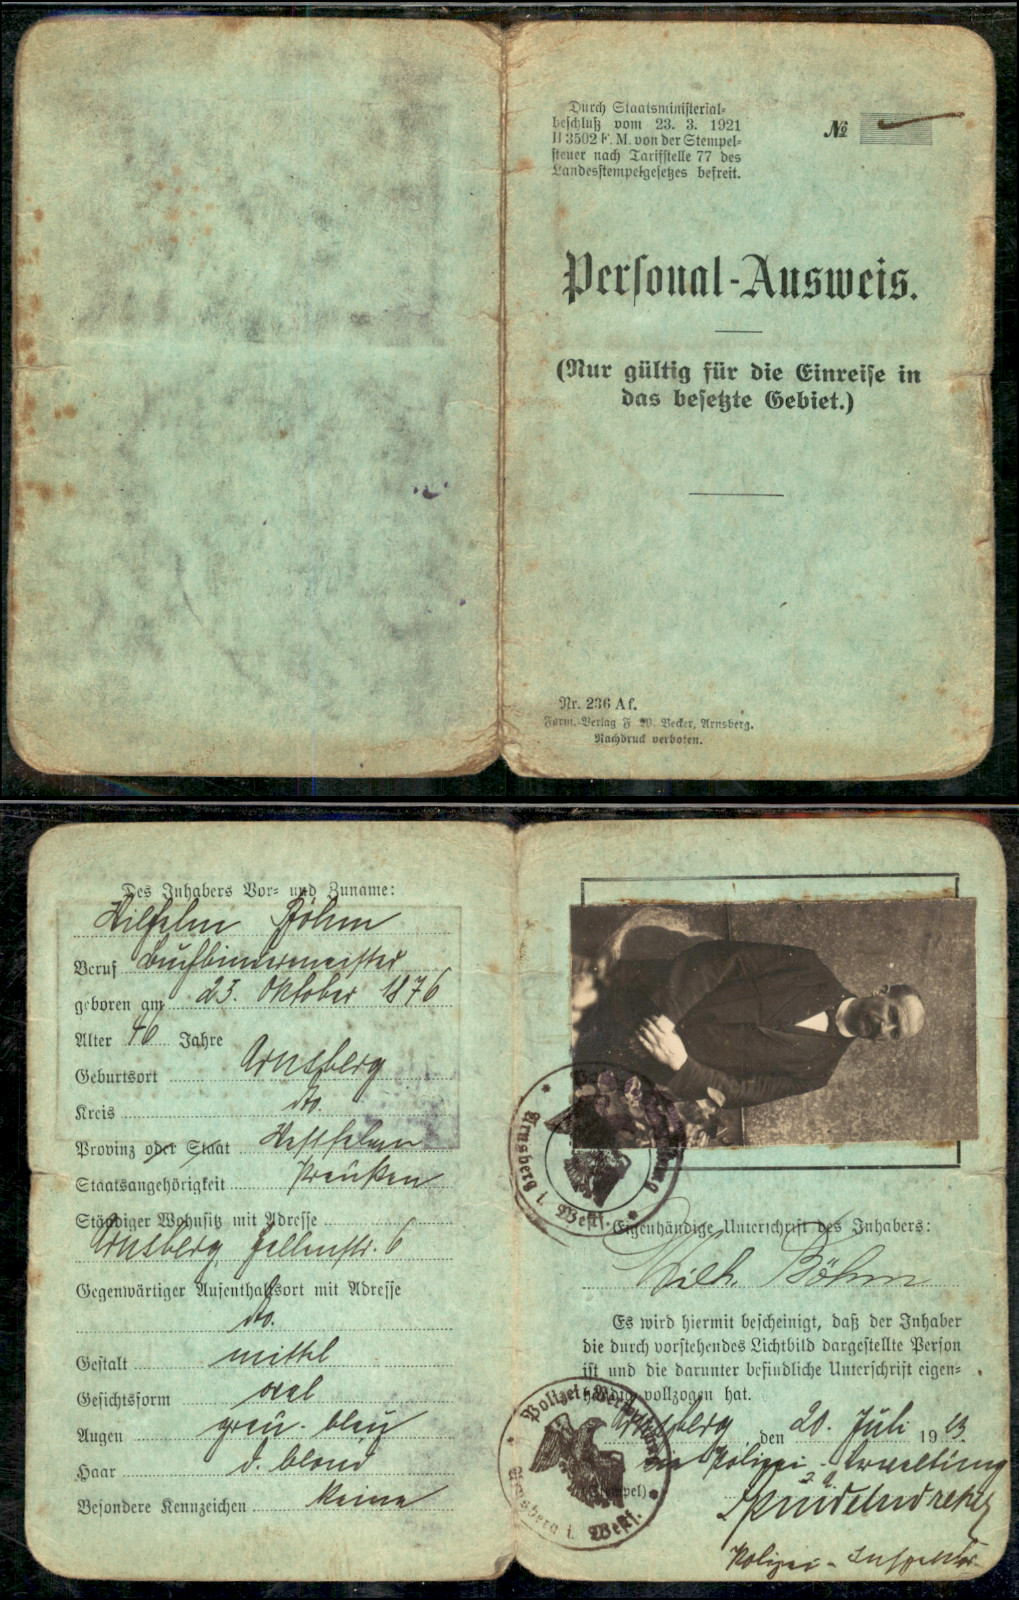 Durch Staatsministerial-
beschluß vom 23. 3. 1921
II 3502 F. M. von der Stempel-
steuer nach Tarifstelle 77 des
Landesstempelgesetzes befreit.
№
Personal-Ausweis.
(Nur gültig für die Einreise in
das besetzte Gebiet.)
Nr. 236 Af.
Form.-Verlag F. W. Becker, Arnsberg.
Nachdruck verboten.
Des Inhabers Vor- und Zuname:
Wilhelm Böhm
Beruf Buchbindermeister
geboren am 23. Oktober 1876
Alter 46 Jahre
Geburtsort Arnsberg
Kreis do.
Provinz oder Staat Westfalen
Staatsangehörigkeit Preußen
Ständiger Wohnsitz mit Adresse
Arnsberg 6
Gegenwärtiger Aufenthaltsort mit Adresse
do.
Gestalt mittel
Gesichtsform oval
Augen grau-blau
Haar d. blond
Besondere Kennzeichen keine
Arnsberg i. Westf.
Eigenhändige Unterschrift des Inhabers:
Wilh. Böhm
Es wird hiermit bescheinigt, daß der Inhaber
die durch vorstehendes Lichtbild dargestellte Person
ist und die darunter befindliche Unterschrift eigen-
händig vollzogen hat.
Arnsberg den 20. Juli 1923
Die Polizei-Verwaltung
(Stempel)
Polizei-Verwaltung
Arnsberg i. Westf.
Polizei-Inspektor